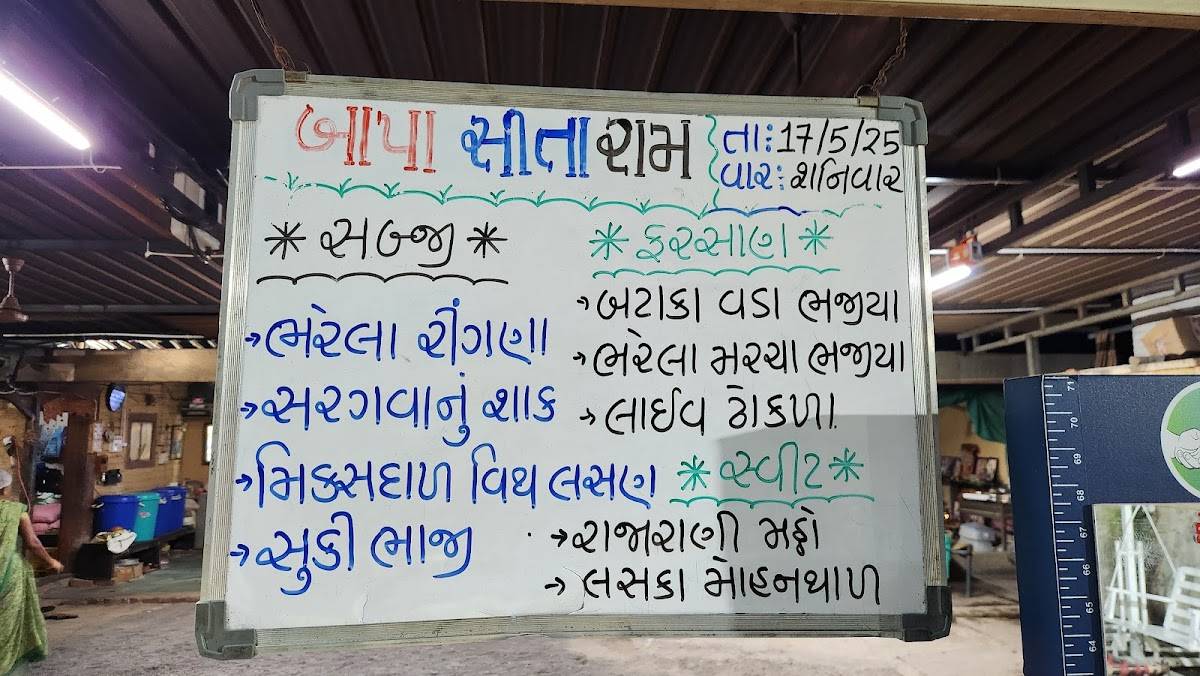 બાપા સીતારામ
તાઃ 17/5/25
વારઃ શનિવાર
* સબ્જી *
→ ભરેલા રીંગણા
→ સરગવાનું શાક
→ મિક્સદાળ વિથ લસણ
→ સુકી ભાજી
* ફરસાણ *
→ બટાકા વડા ભજીયા
→ ભરેલા મરચા ભજીયા
→ લાઈવ ઢોકળા
* સ્વીટ *
→ રાજારાણી મઠ્ઠો
→ લસકા મોહનથાળ
71
70
69
68
67
66
65
64